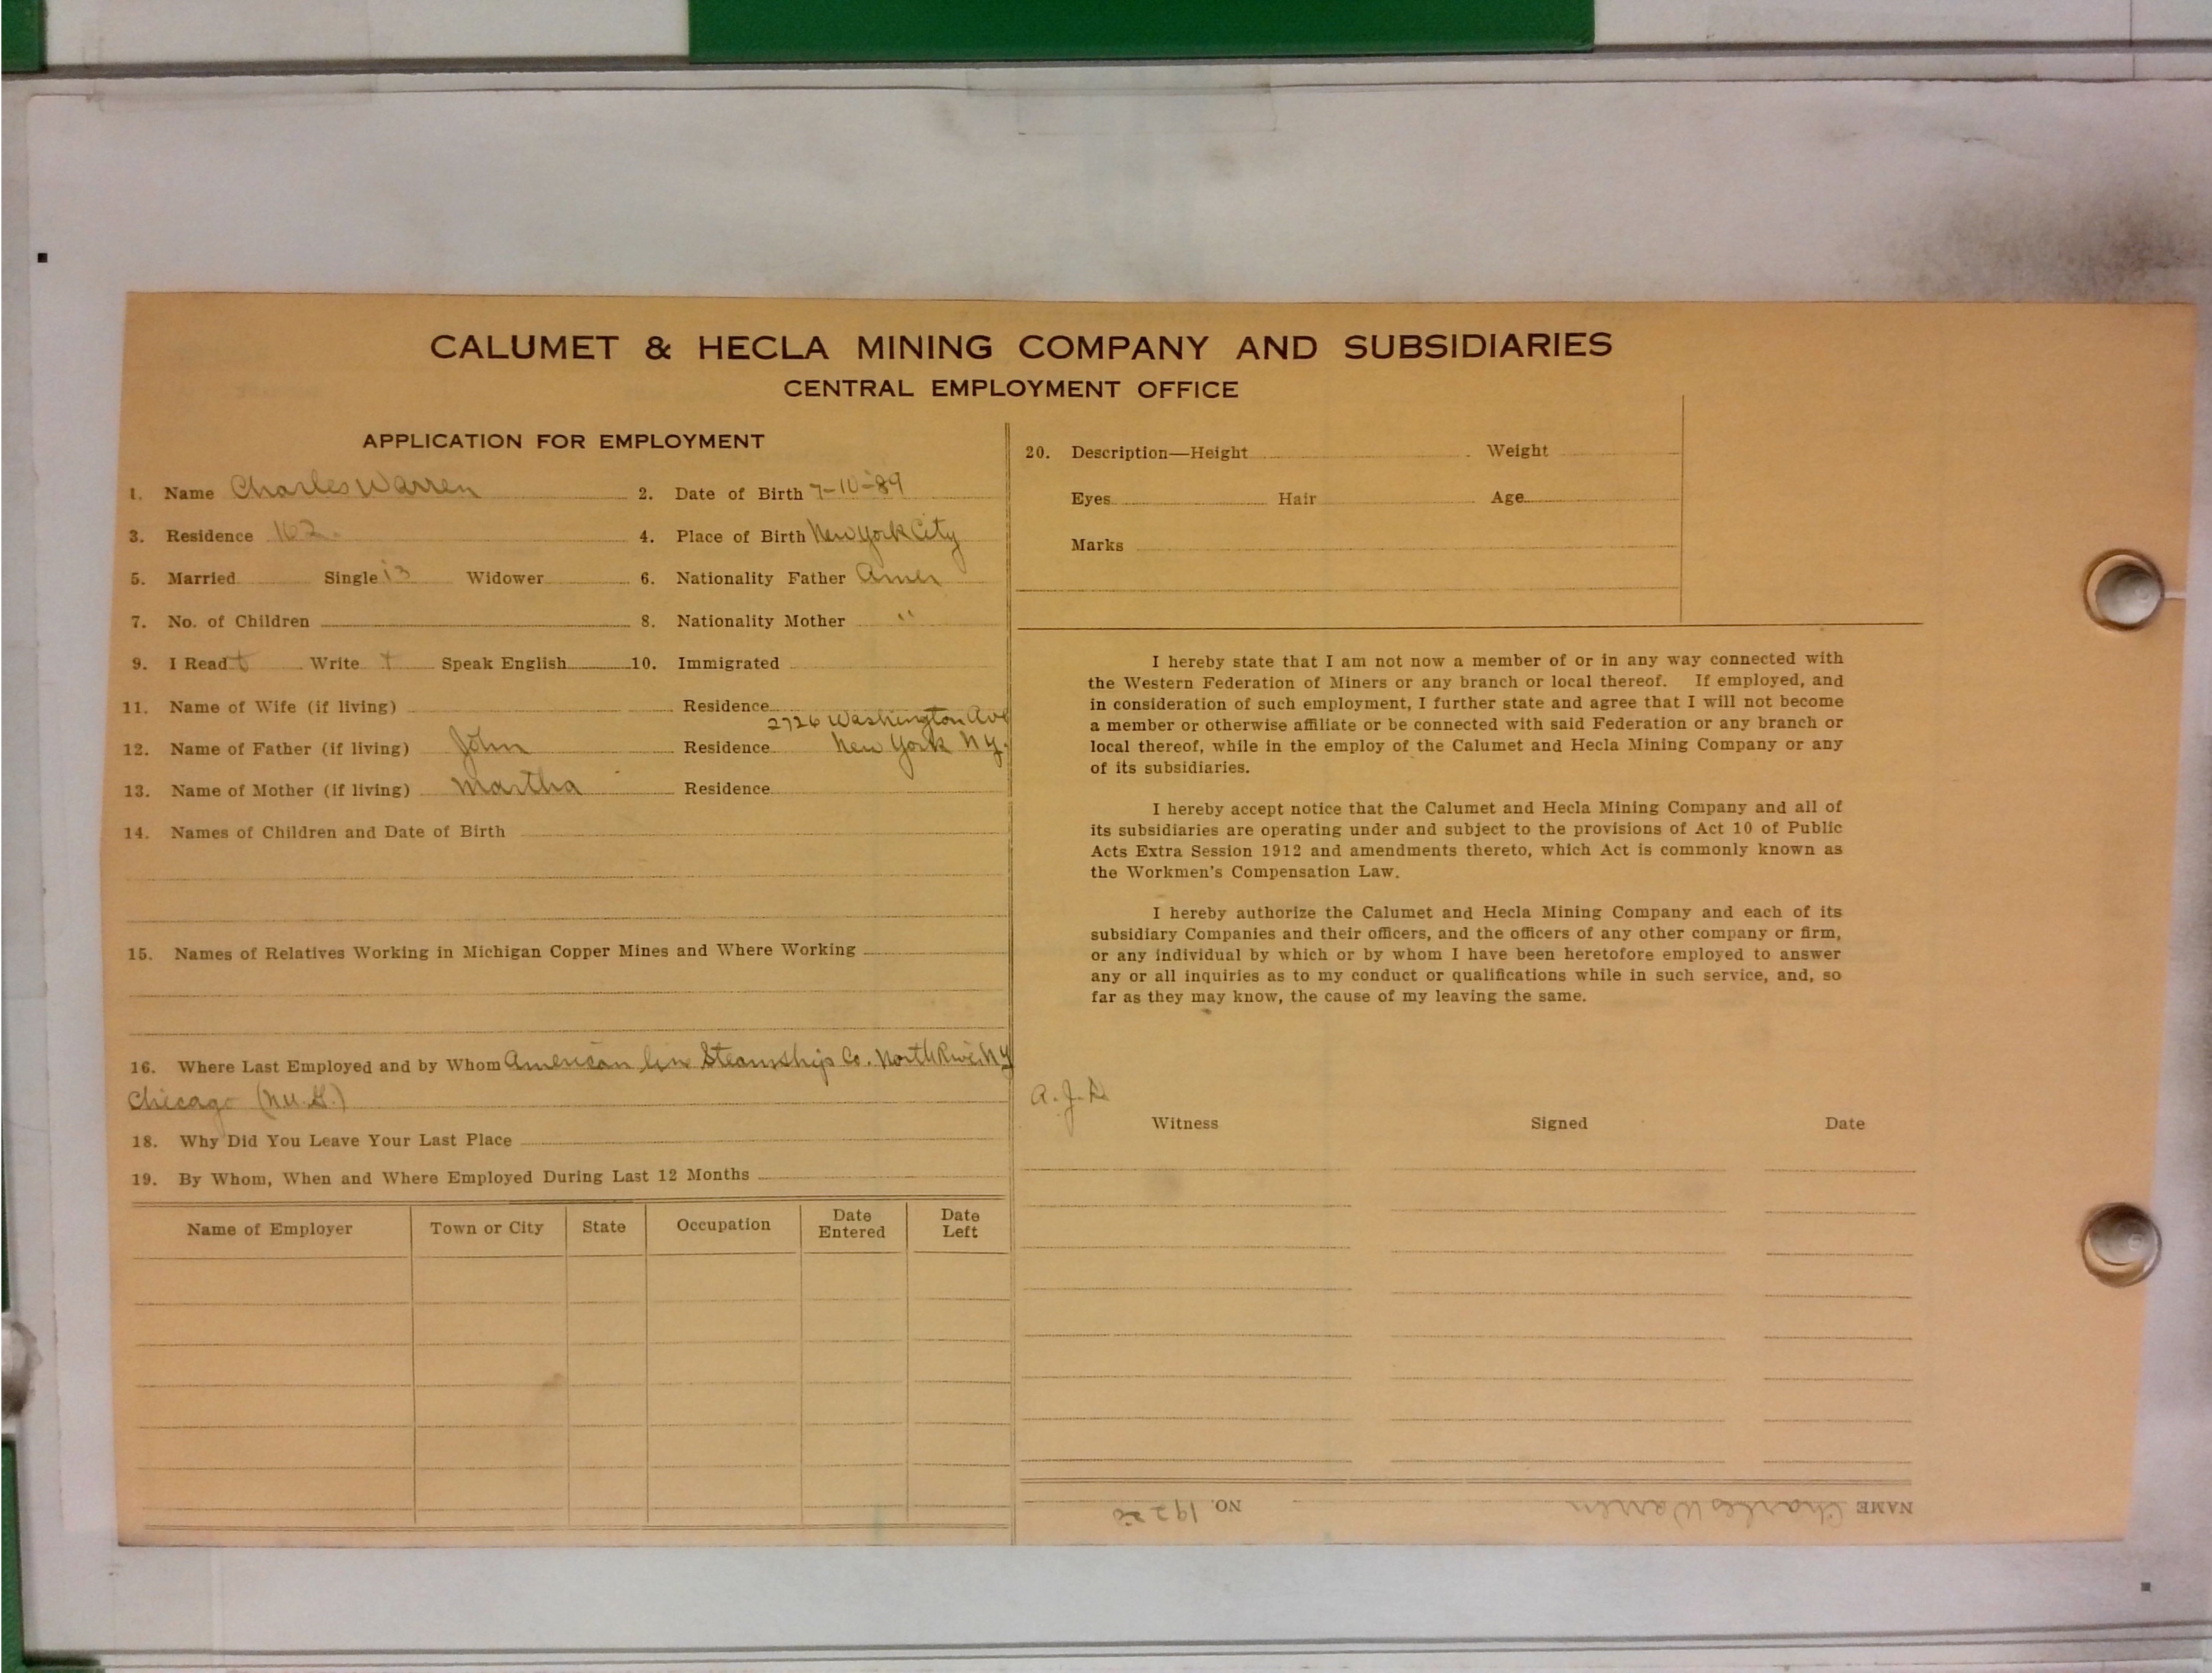 CALUMET & HECLA MINING COMPANY AND SUBSIDIARIES
CENTRAL EMPLOYMENT OFFICE
APPLICATION FOR EMPLOYMENT
1. Name Charles Warren 2. Date of Birth 7-10-89
3. Residence 162 4. Place of Birth New York City
5. Married Single Widower 6. Nationality Father Amer
7. No. of Children 8. Nationality Mother "
9. I Read Write Speak English 10. Immigrated
11. Name of Wife (if living) Residence
2726 Washington Ave
12. Name of Father (if living) John Residence New York N.Y.
13. Name of Mother (if living) Martha Residence
14. Names of Children and Date of Birth
15. Names of Relatives Working in Michigan Copper Mines and Where Working
16. Where Last Employed and by Whom American line Steamship Co. North River NY
Chicago
18. Why Did You Leave Your Last Place
19. By Whom, When and Where Employed During Last 12 Months
Name of Employer Town or City State Occupation Date Entered Date Left
20. Description—Height Weight
Eyes Hair Age
Marks
I hereby state that I am not now a member of or in any way connected with
the Western Federation of Miners or any branch or local thereof. If employed, and
in consideration of such employment, I further state and agree that I will not become
a member or otherwise affiliate or be connected with said Federation or any branch or
local thereof, while in the employ of the Calumet and Hecla Mining Company or any
of its subsidiaries.
I hereby accept notice that the Calumet and Hecla Mining Company and all of
its subsidiaries are operating under and subject to the provisions of Act 10 of Public
Acts Extra Session 1912 and amendments thereto, which Act is commonly known as
the Workmen's Compensation Law.
I hereby authorize the Calumet and Hecla Mining Company and each of its
subsidiary Companies and their officers, and the officers of any other company or firm,
or any individual by which or by whom I have been heretofore employed to answer
any or all inquiries as to my conduct or qualifications while in such service, and, so
far as they may know, the cause of my leaving the same.
Witness Signed Date
NAME Charles Warren NO.